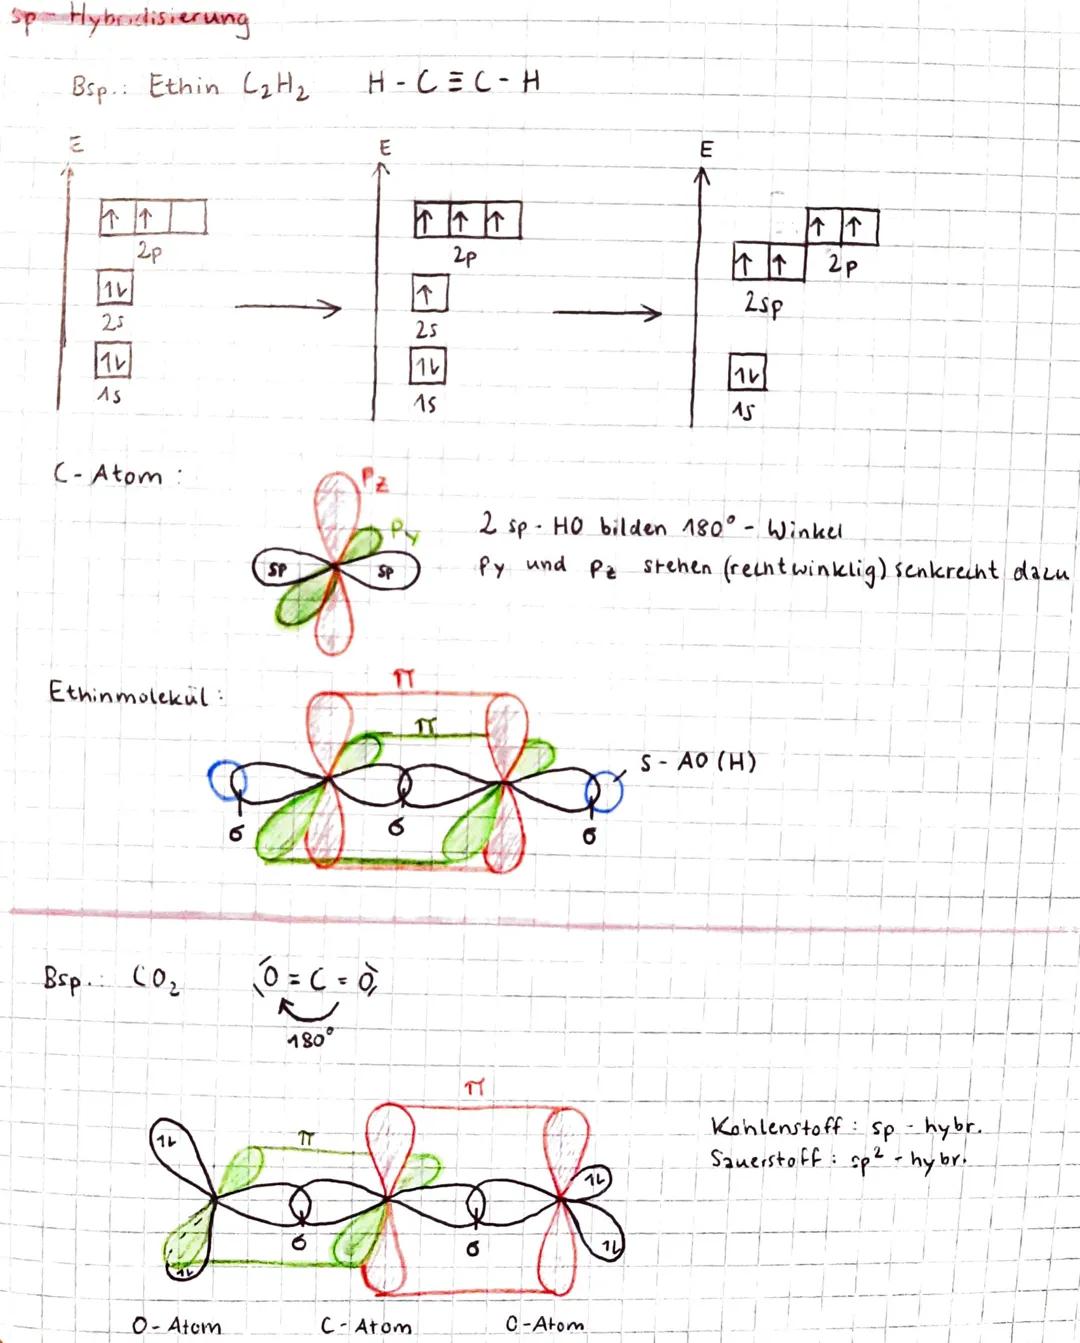 sp - Hybridisierung
Bsp.: Ethin C₂H₂ H - C ≡ C - H
E E E
↑ ↑ ↑ ↑ ↑ ↑ ↑
2p 2p ↑ ↑ 2p
1↓ ↑ 2sp
2s 2s
1↓ 1↓ 1↓
1s 1s 1s
C - Atom :
Pz
Py
sp sp
2 sp - HO bilden 180° - Winkel
Py und Pz stehen (rechtwinklig) senkrecht dazu
Ethinmolekül :
π
π
S - AO (H)
σ σ σ
Bsp.: CO₂ O = C = O
180°
π
π
1↓ 1↓
1↓ 1↓
σ σ
Kohlenstoff : sp - hybr.
Sauerstoff : sp² - hybr.
O - Atom C - Atom O - Atom